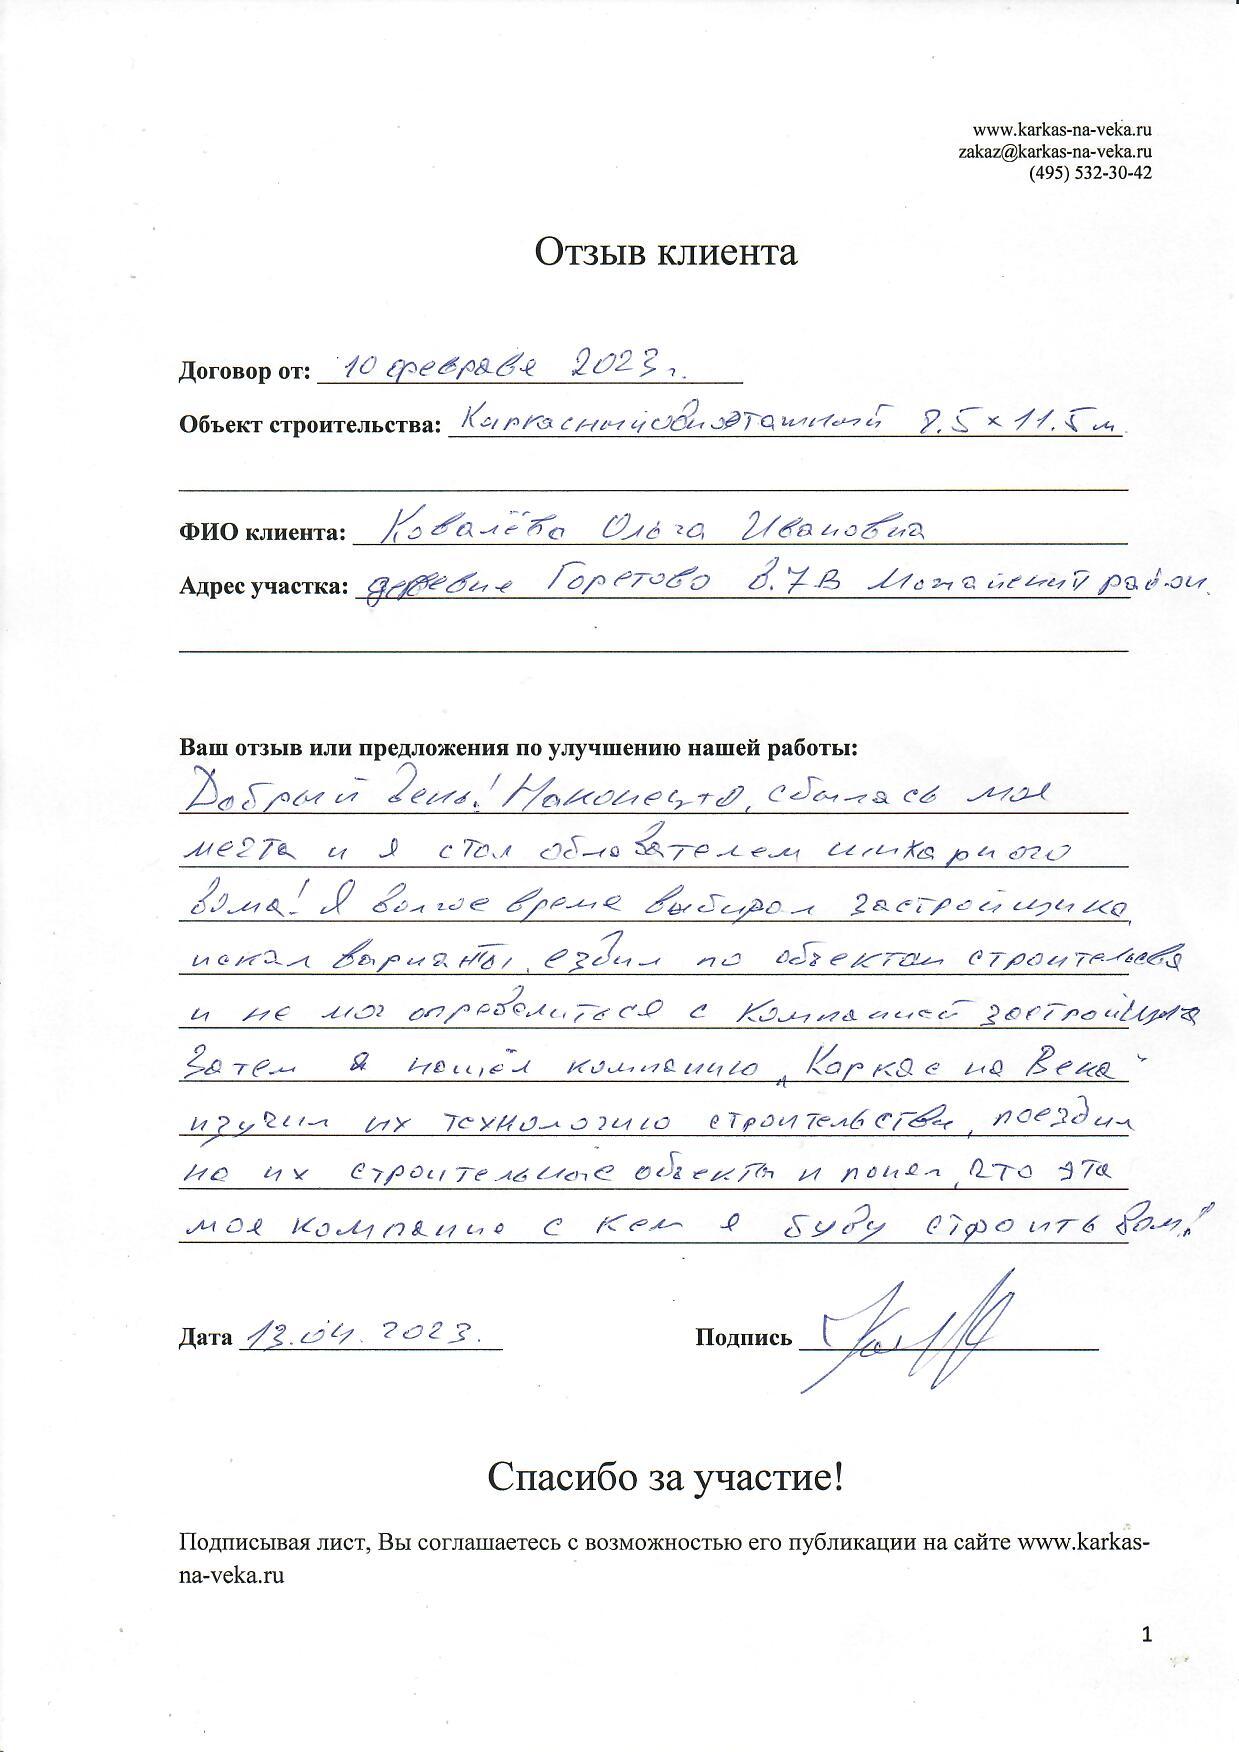 www.karkas-na-veka.ru
zakaz@karkas-na-veka.ru
(495) 532-30-42
Отзыв клиента
Договор от: 10 февраля 2023 г.
Объект строительства: Каркасный двухэтажный 8.5 x 11.5 м
ФИО клиента: Ковалёва Ольга Ивановна
Адрес участка: деревня Горетово д.7В Можайский район.
Ваш отзыв или предложения по улучшению нашей работы:
Добрый день! Наконец-то, сбылась моя
мечта и я стал обладателем шикарного
дома! Я долгое время выбирал застройщика,
искал варианты, ездил по объектам строительства
и не мог определиться с компанией застройщика
Затем я нашёл компанию "Каркас на Века"
изучил их технологию строительства, поездил
на их строительные объекты и понял, что эта
моя компания с кем я буду строить дом!
Дата 13.04.2023.
Подпись
Спасибо за участие!
Подписывая лист, Вы соглашаетесь с возможностью его публикации на сайте www.karkas-
na-veka.ru
1